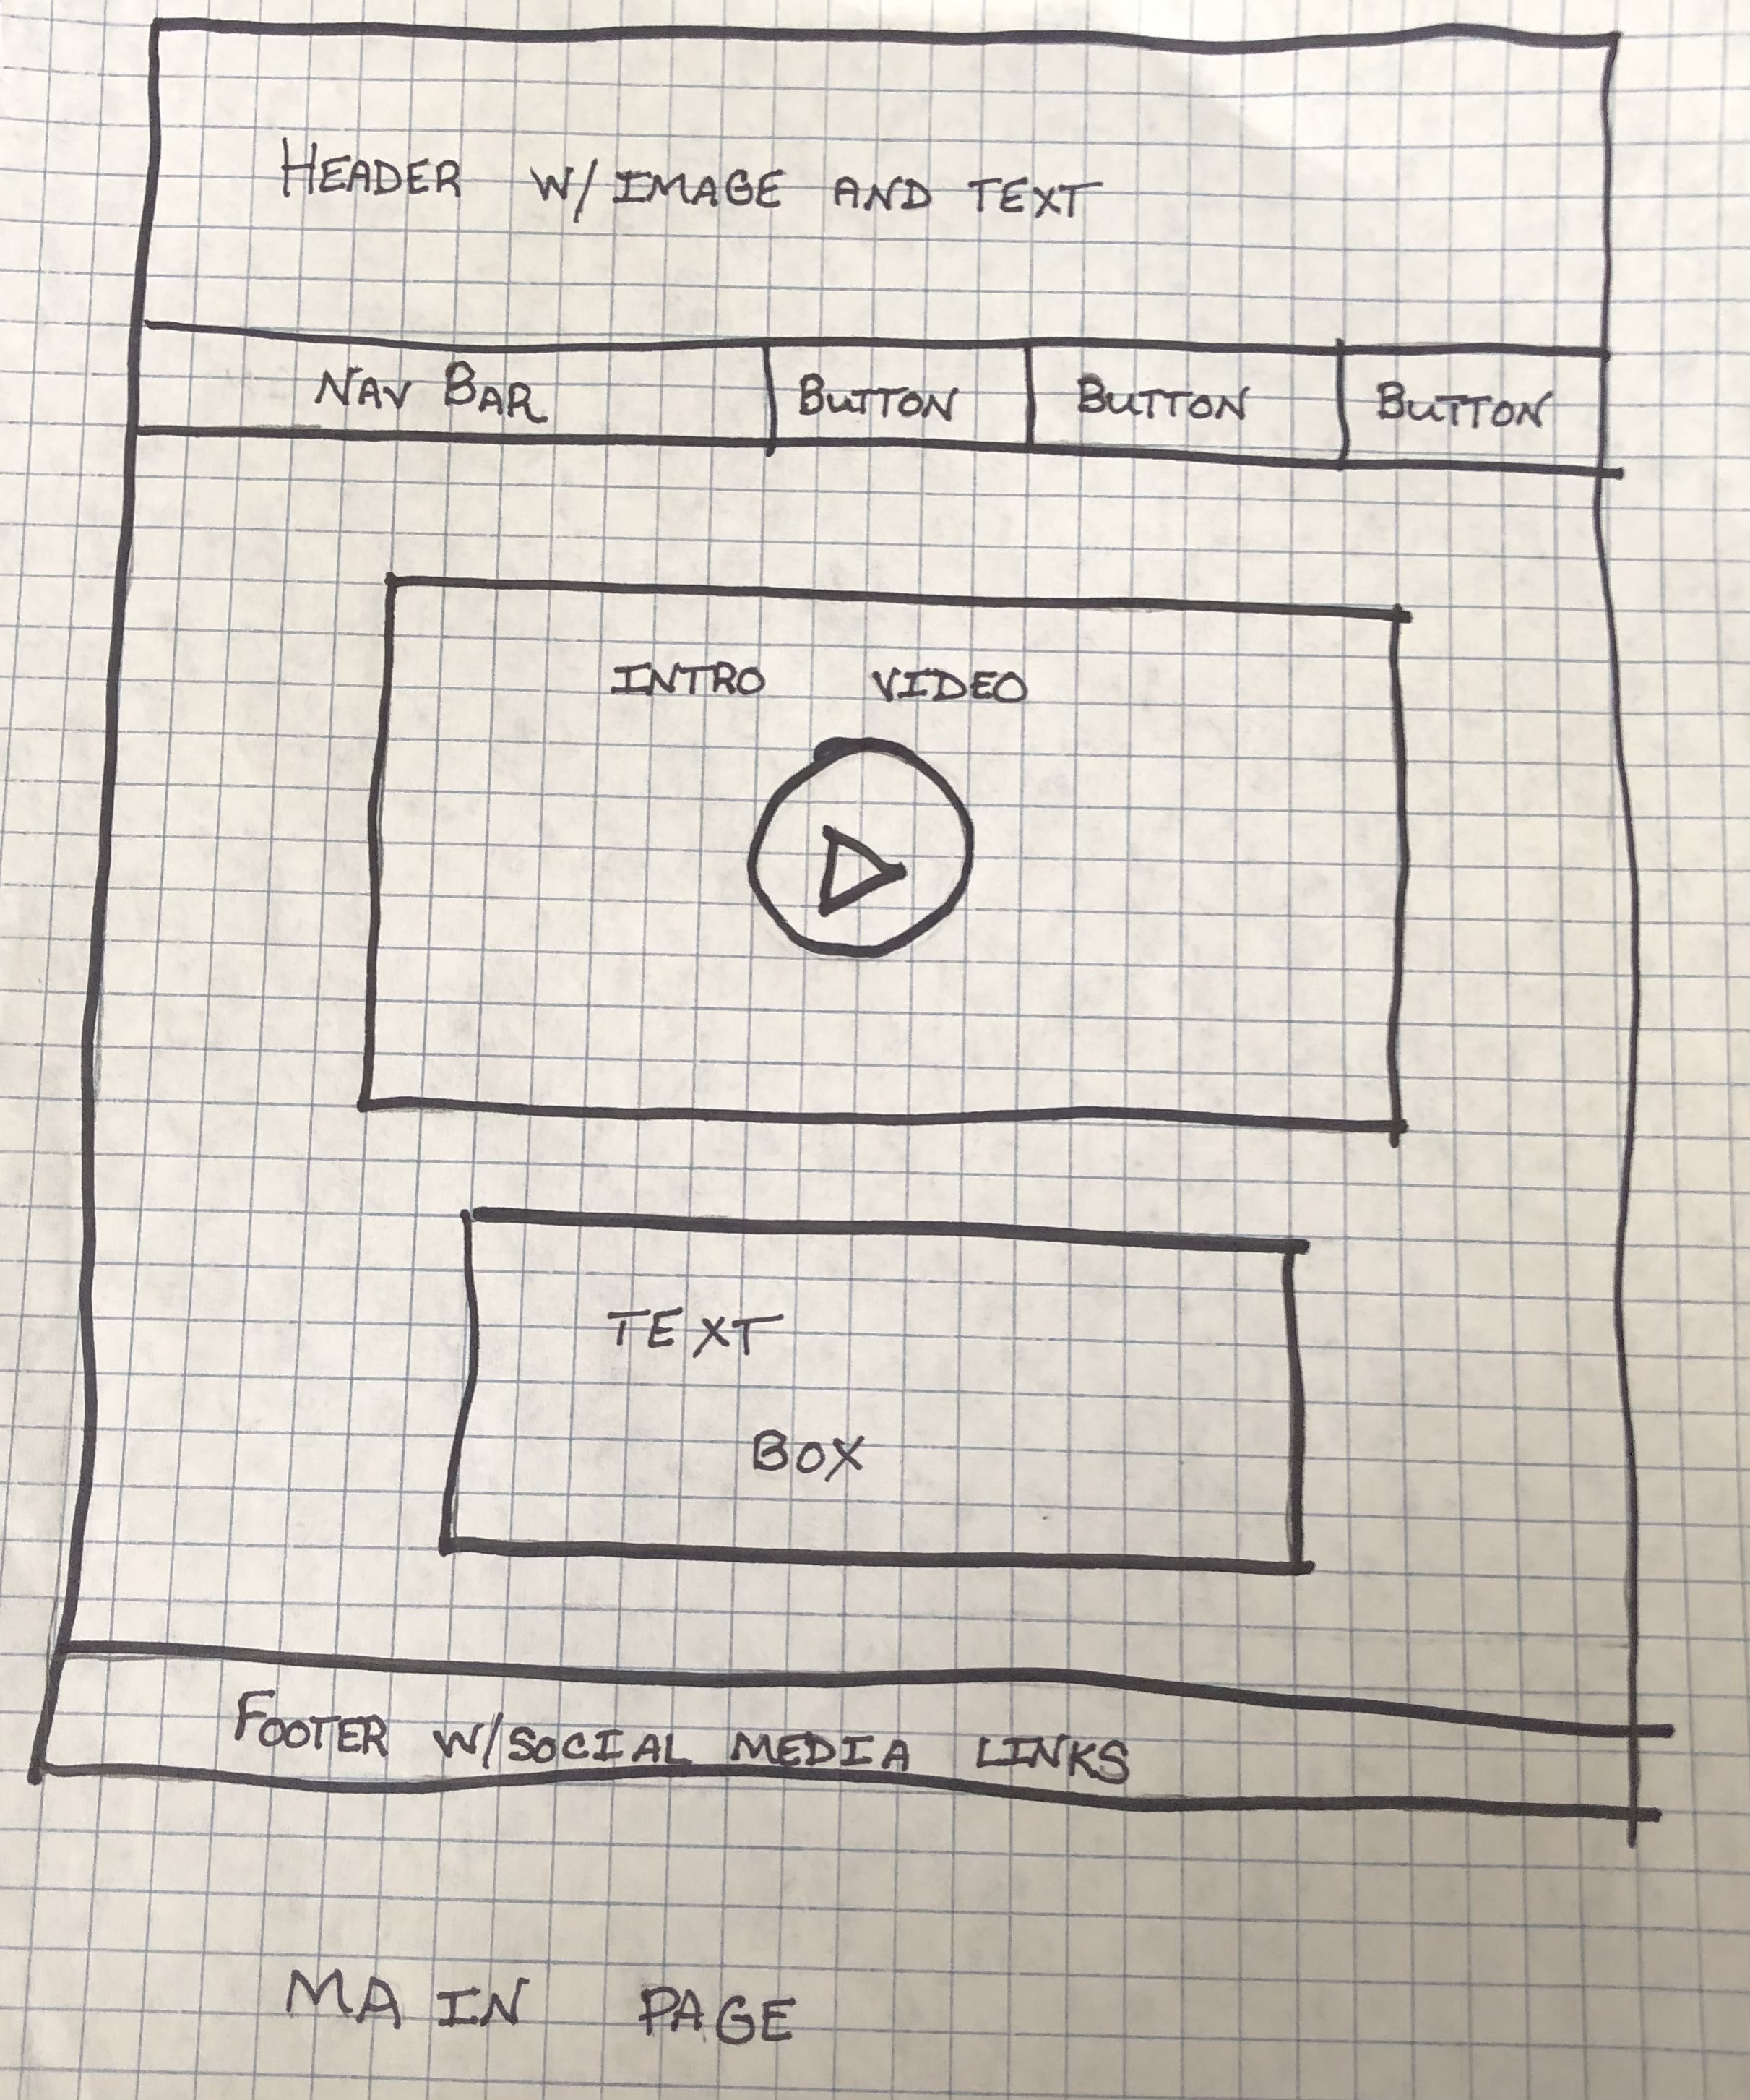 HEADER W/ IMAGE AND TEXT
NAV BAR BUTTON BUTTON BUTTON
INTRO VIDEO
TEXT
BOX
FOOTER W/SOCIAL MEDIA LINKS
MAIN PAGE